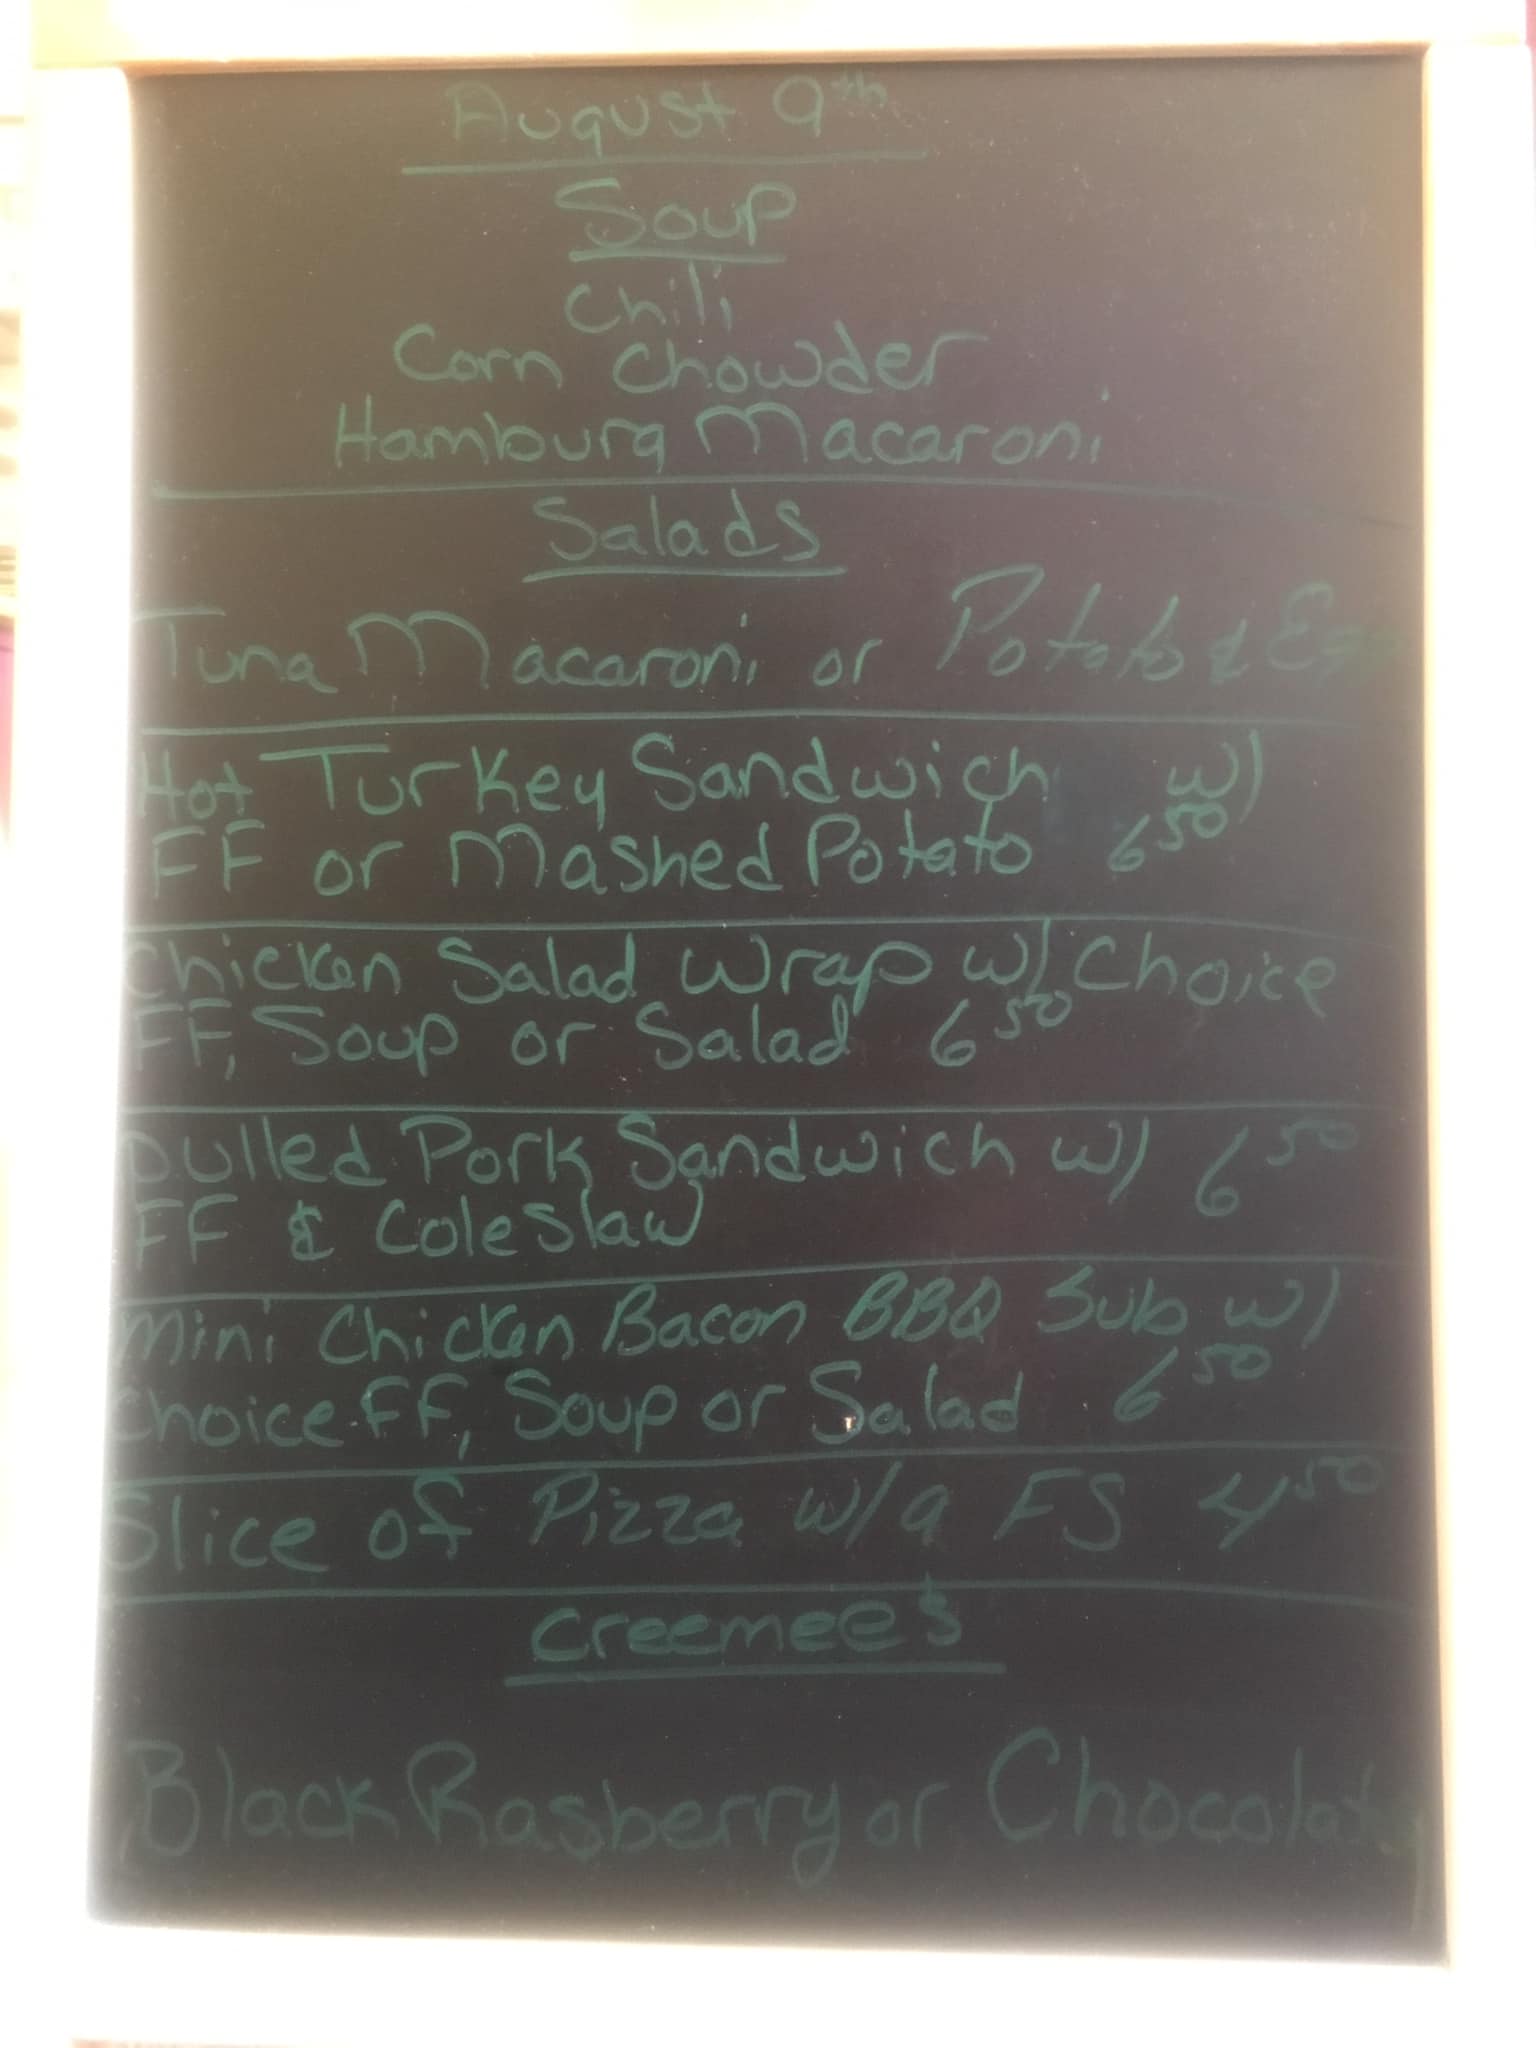 August 9th
Soup
Chili
Corn Chowder
Hamburg Macaroni
Salads
Tuna Macaroni or Potato & Egg
Hot Turkey Sandwich w/
FF or Mashed Potato 6 50
Chicken Salad Wrap w/ Choice
FF, Soup or Salad 6 50
Pulled Pork Sandwich w/ 6 50
FF & Coleslaw
Mini Chicken Bacon BBQ Sub w/
Choice FF, Soup or Salad 6 50
Slice of Pizza w/a FS 4 50
Creemee's
Black Rasberry or Chocolate